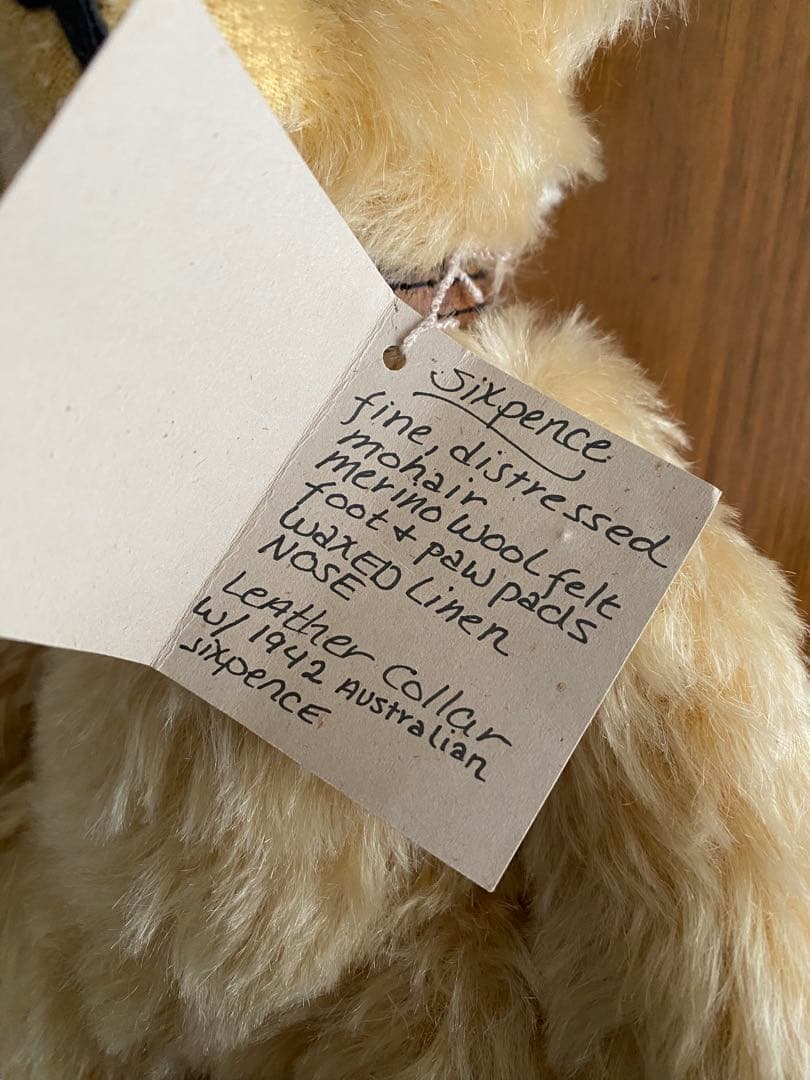 Sixpence
fine, distressed
mohair
merino wool felt
foot + paw pads
WAXED Linen
NOSE
LEAther Collar
W/ 1942 AUStralian
SixpENCE